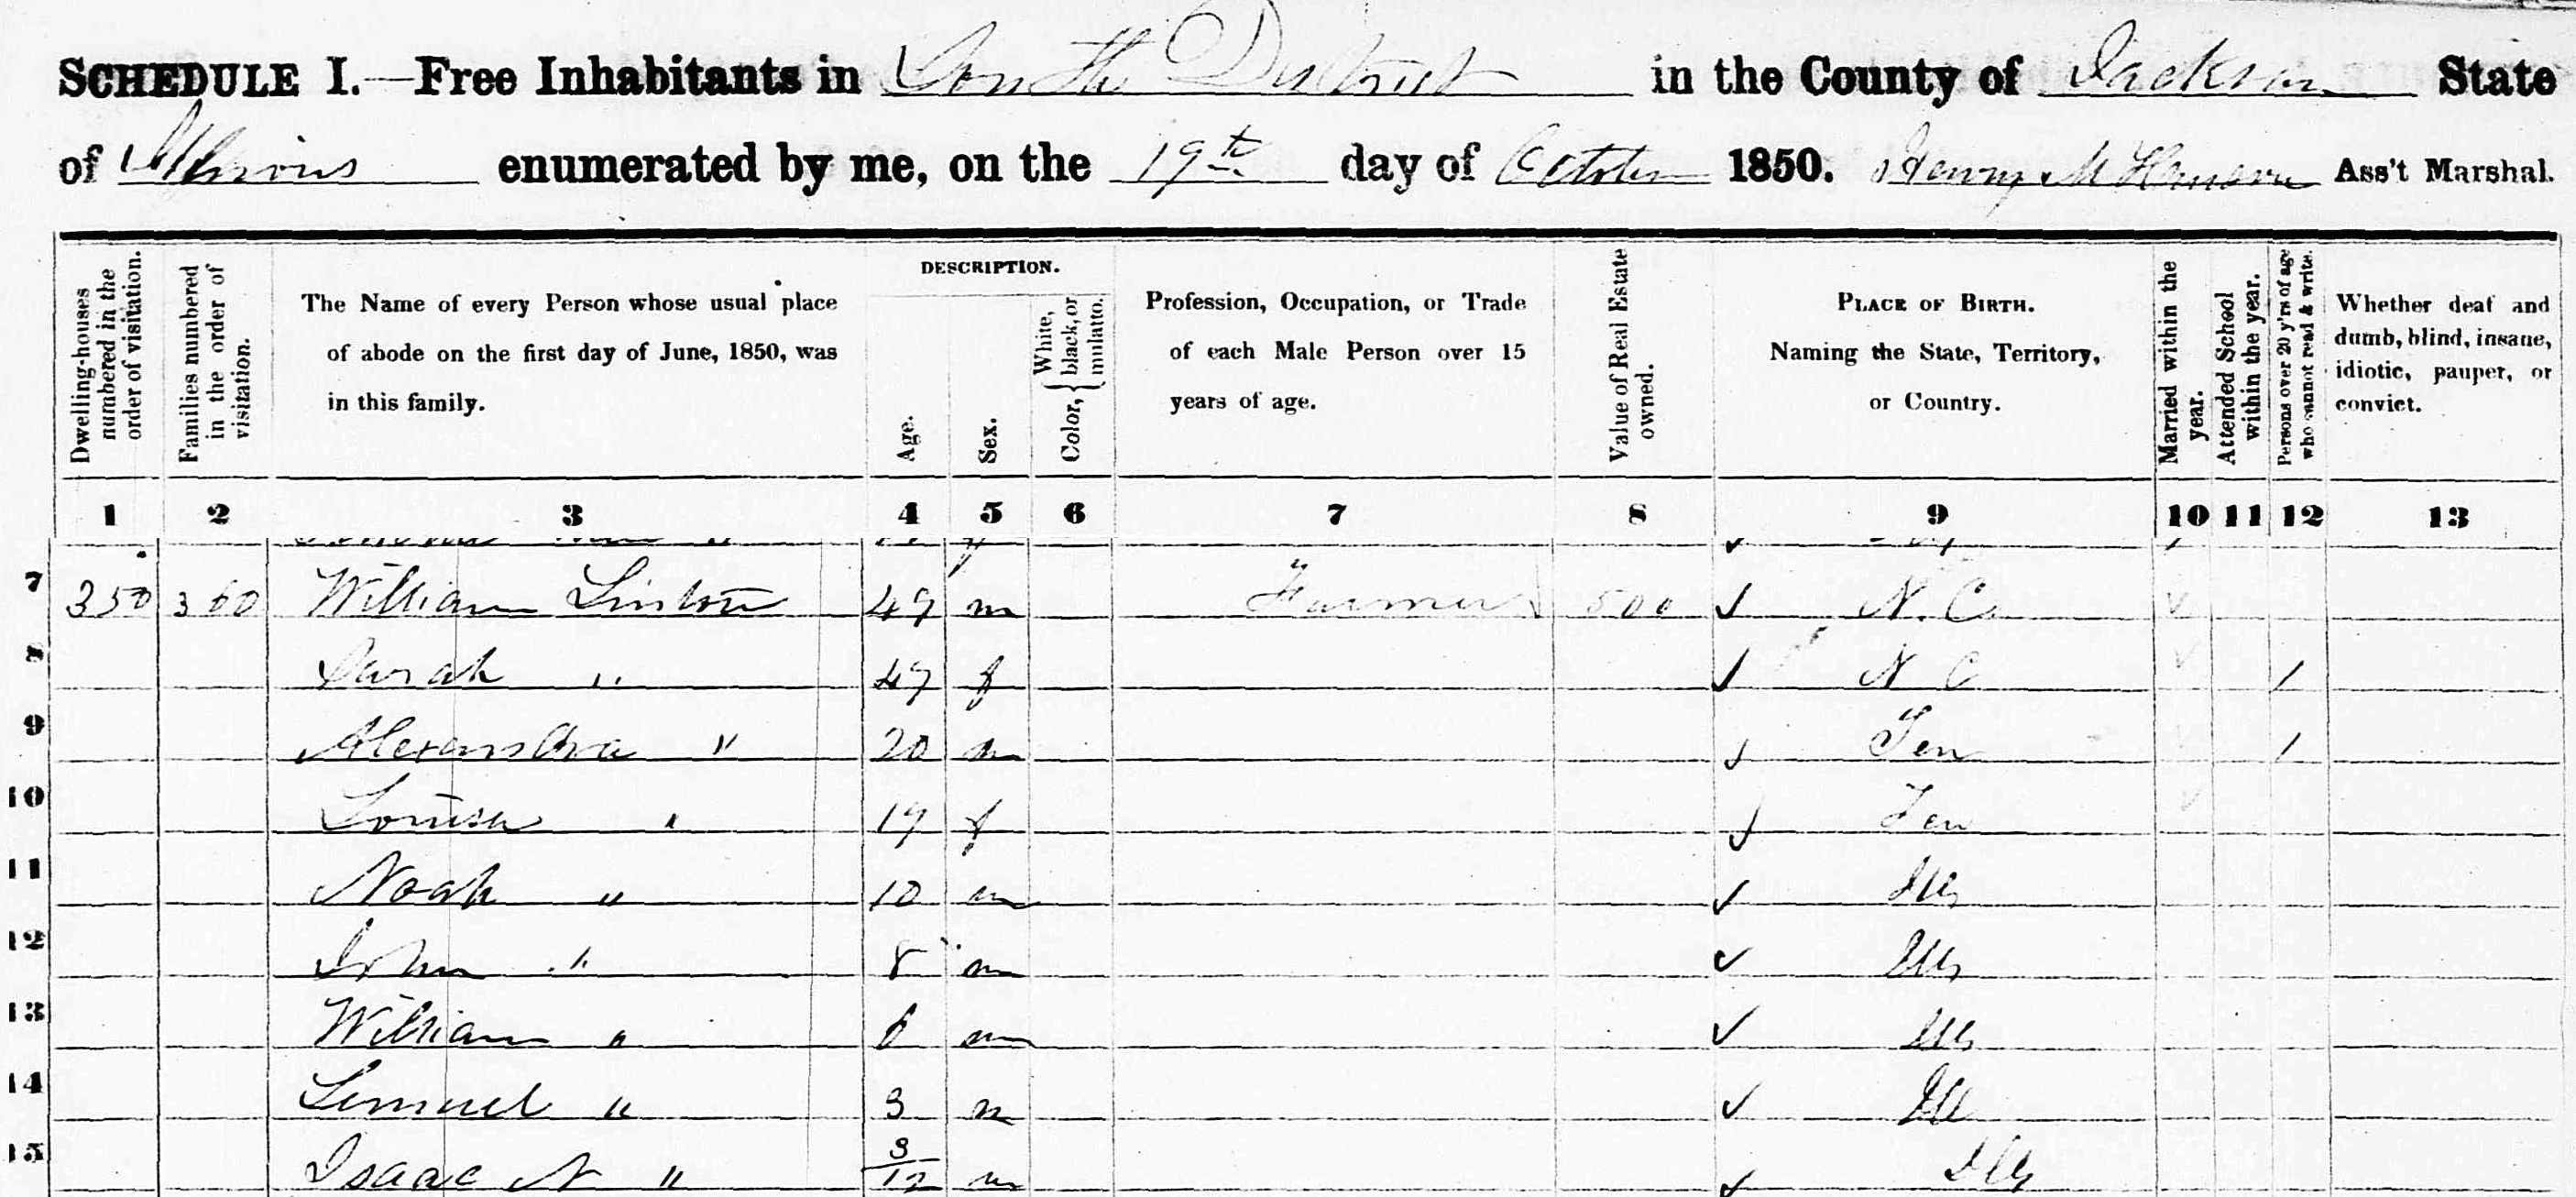 SCHEDULE I.—Free Inhabitants in South District in the County of Jackson State
of Illinois enumerated by me, on the 19th day of October 1850. Henry M Ass't Marshal.
Dwelling-houses numbered in the order of visitation.
Families numbered in the order of visitation.
The Name of every Person whose usual place of abode on the first day of June, 1850, was in this family.
DESCRIPTION.
Age.
Sex.
Color, { White, black, or mulatto.
Profession, Occupation, or Trade of each Male Person over 15 years of age.
Value of Real Estate owned.
PLACE OF BIRTH. Naming the State, Territory, or Country.
Married within the year.
Attended School within the year.
Persons over 20 y'rs of age who cannot read & write.
Whether deaf and dumb, blind, insane, idiotic, pauper, or convict.
1 2 3 4 5 6 7 8 9 10 11 12 13
7 350 360 William Linton 49 m Farmer 500 ✓ N. C.
8 Sarah " 49 f ✓ N C 1
9 Alexandra " 20 m ✓ Ten 1
10 Louisa " 19 f ✓ Ten
11 Noah " 10 m ✓ Ills
12 John " 8 m ✓ Ills
13 William " 6 m ✓ Ills
14 Lemuel " 3 m ✓ Ill
15 Isaac N " 3/12 m ✓ Ills